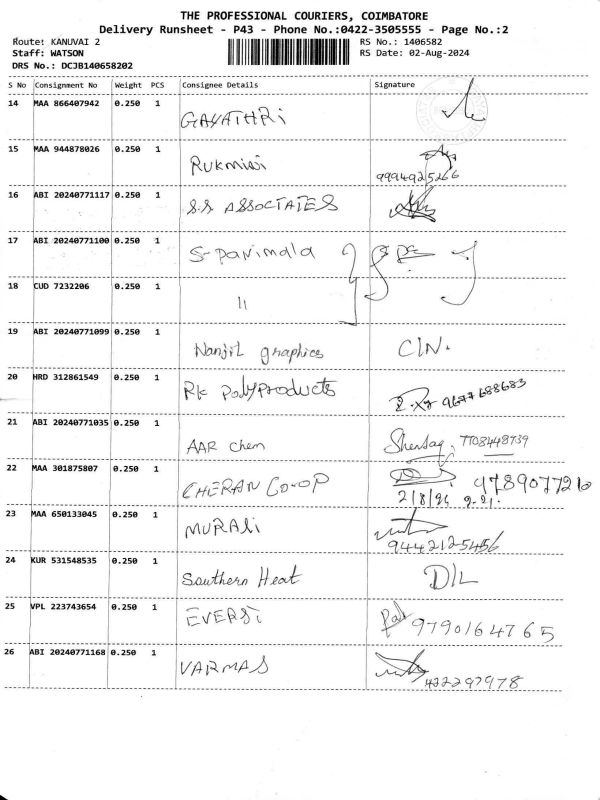 THE PROFESSIONAL COURIERS, COIMBATORE
Delivery Runsheet - P43 - Phone No.:0422-3505555 - Page No.:2
Route: KANUVAI 2 RS No.: 1406582
Staff: WATSON RS Date: 02-Aug-2024
DRS No.: DCJB140658202
S No Consignment No Weight PCS Consignee Details Signature
14 MAA 866407942 0.250 1 GAYATHRi
15 MAA 944878026 0.250 1 RUKMiNi 9994925266
16 ABI 20240771117 0.250 1 S.S ASSOCTATES
17 ABI 20240771100 0.250 1 S-Parimala
18 CUD 7232206 0.250 1 11
19 ABI 20240771099 0.250 1 Nanjil graphics C/N.
20 HRD 312861549 0.250 1 RK PolyProducts 9677688683
21 ABI 20240771035 0.250 1 AAR Chem 7708448739
22 MAA 301875807 0.250 1 CHERAN CO-OP 2/8/24
23 MAA 650133045 0.250 1 MURALi 9442125456
24 KUR 531548535 0.250 1 Southern Heat D/L
25 VPL 223743654 0.250 1 EVERSi 9790164765
26 ABI 20240771168 0.250 1 VARMAS 422297978